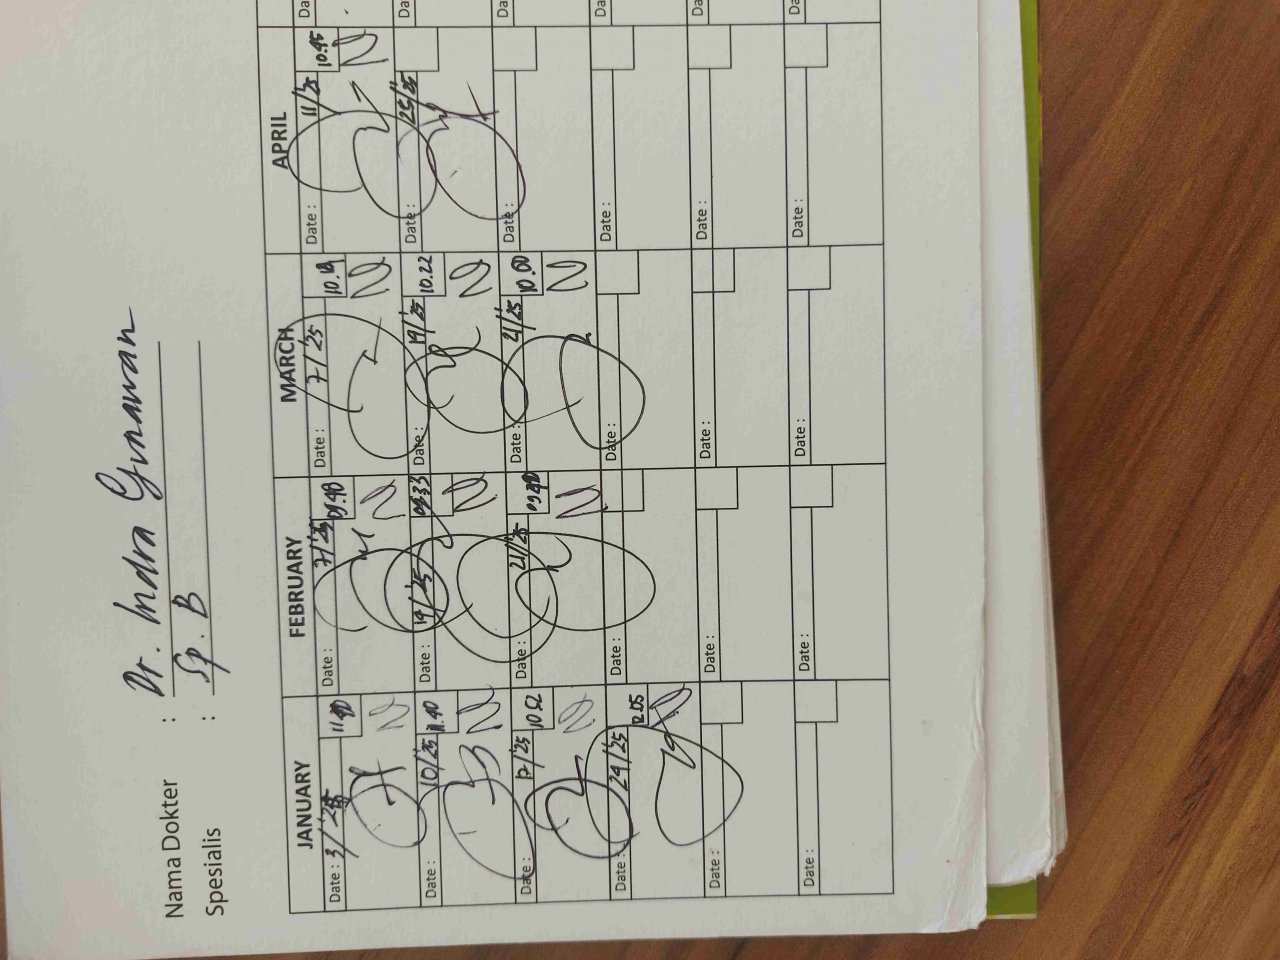 Nama Dokter : Dr. Indra Gunawan
Spesialis : Sp. B
JANUARY FEBRUARY MARCH APRIL
Date : 3/'25 Date : 7/'25 09.40 Date : 7/'25 10.19 Date : 11/'25 10.45
Date : 10/'25 11.40 Date : 14/'25 09.33 Date : 19/'25 10.22 Date : 25/'25
Date : 17/'25 10.52 Date : 21/'25 Date : 21/'25 10.00 Date :
Date : 24/'25 12.05 Date : Date : Date :
Date : Date : Date : Date :
Date : Date : Date : Date :